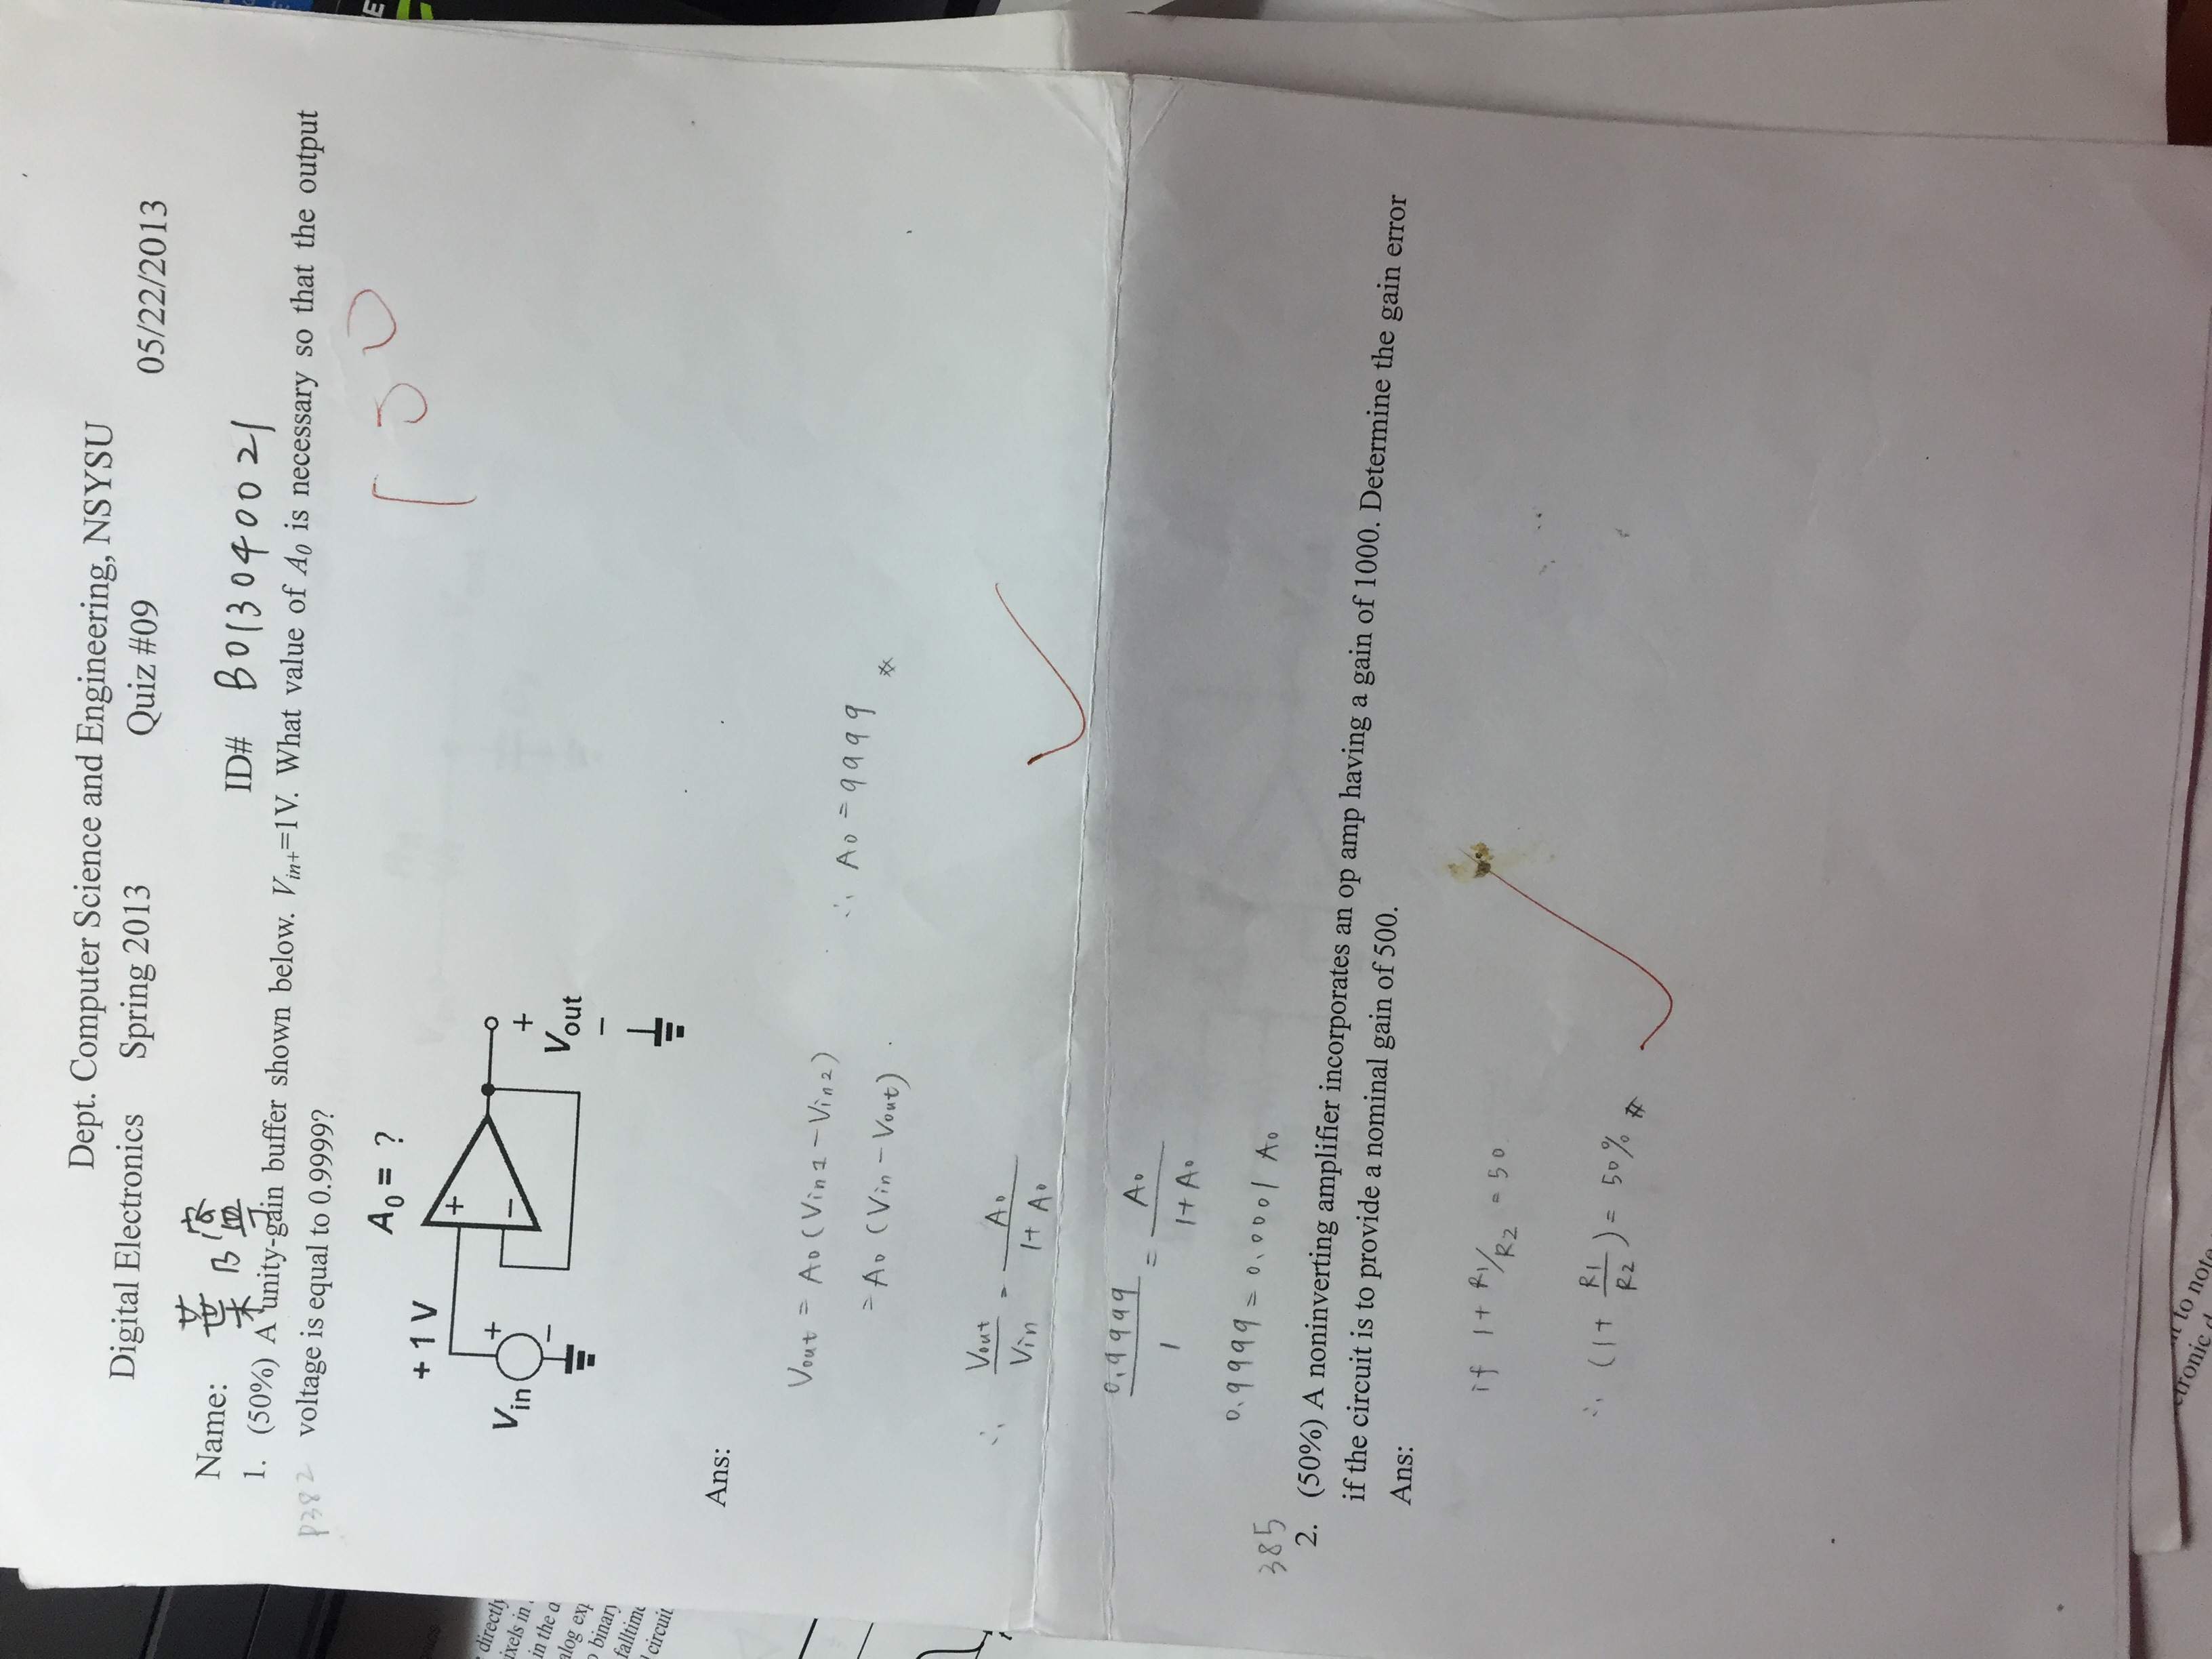 Dept. Computer Science and Engineering, NSYSU
Digital Electronics Spring 2013 Quiz #09 05/22/2013
Name: 葉
ID# B013040021
1. (50%) A unity-gain buffer shown below. Vin+=1V. What value of A0 is necessary so that the output
p382 voltage is equal to 0.9999?
100
A0 = ?
+ 1 V
+
Vin
+
−
+
−
+
Vout
−
Ans:
Vout = A0 (Vin1 − Vin2)
= A0 (Vin − Vout)
∴ A0 = 9999
∴ Vout/Vin = A0/1+A0
0.9999/1 = A0/1+A0
0.9999 = 0.0001 A0
385
2. (50%) A noninverting amplifier incorporates an op amp having a gain of 1000. Determine the gain error
if the circuit is to provide a nominal gain of 500.
Ans:
if 1 + R1/R2 = 50
∴ (1 + R1/R2) = 50% #
directly
ixels in
in the a
alog exp
o binary
falltime
circuit
to note
ctronic d